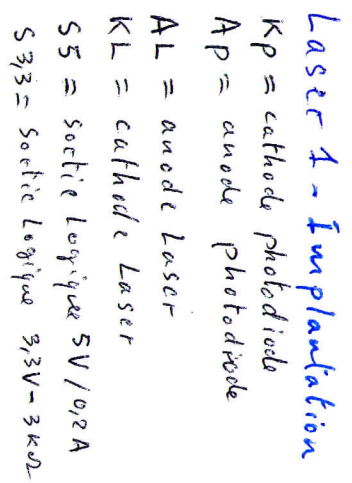 Laser 1 - Implantation
Kp = cathode photodiode
Ap = anode photodiode
AL = anode Laser
KL = cathode Laser
S5 = Sortie Logique 5V/0,2A
S3,3 = Sortie Logique 3,3V - 3KΩ